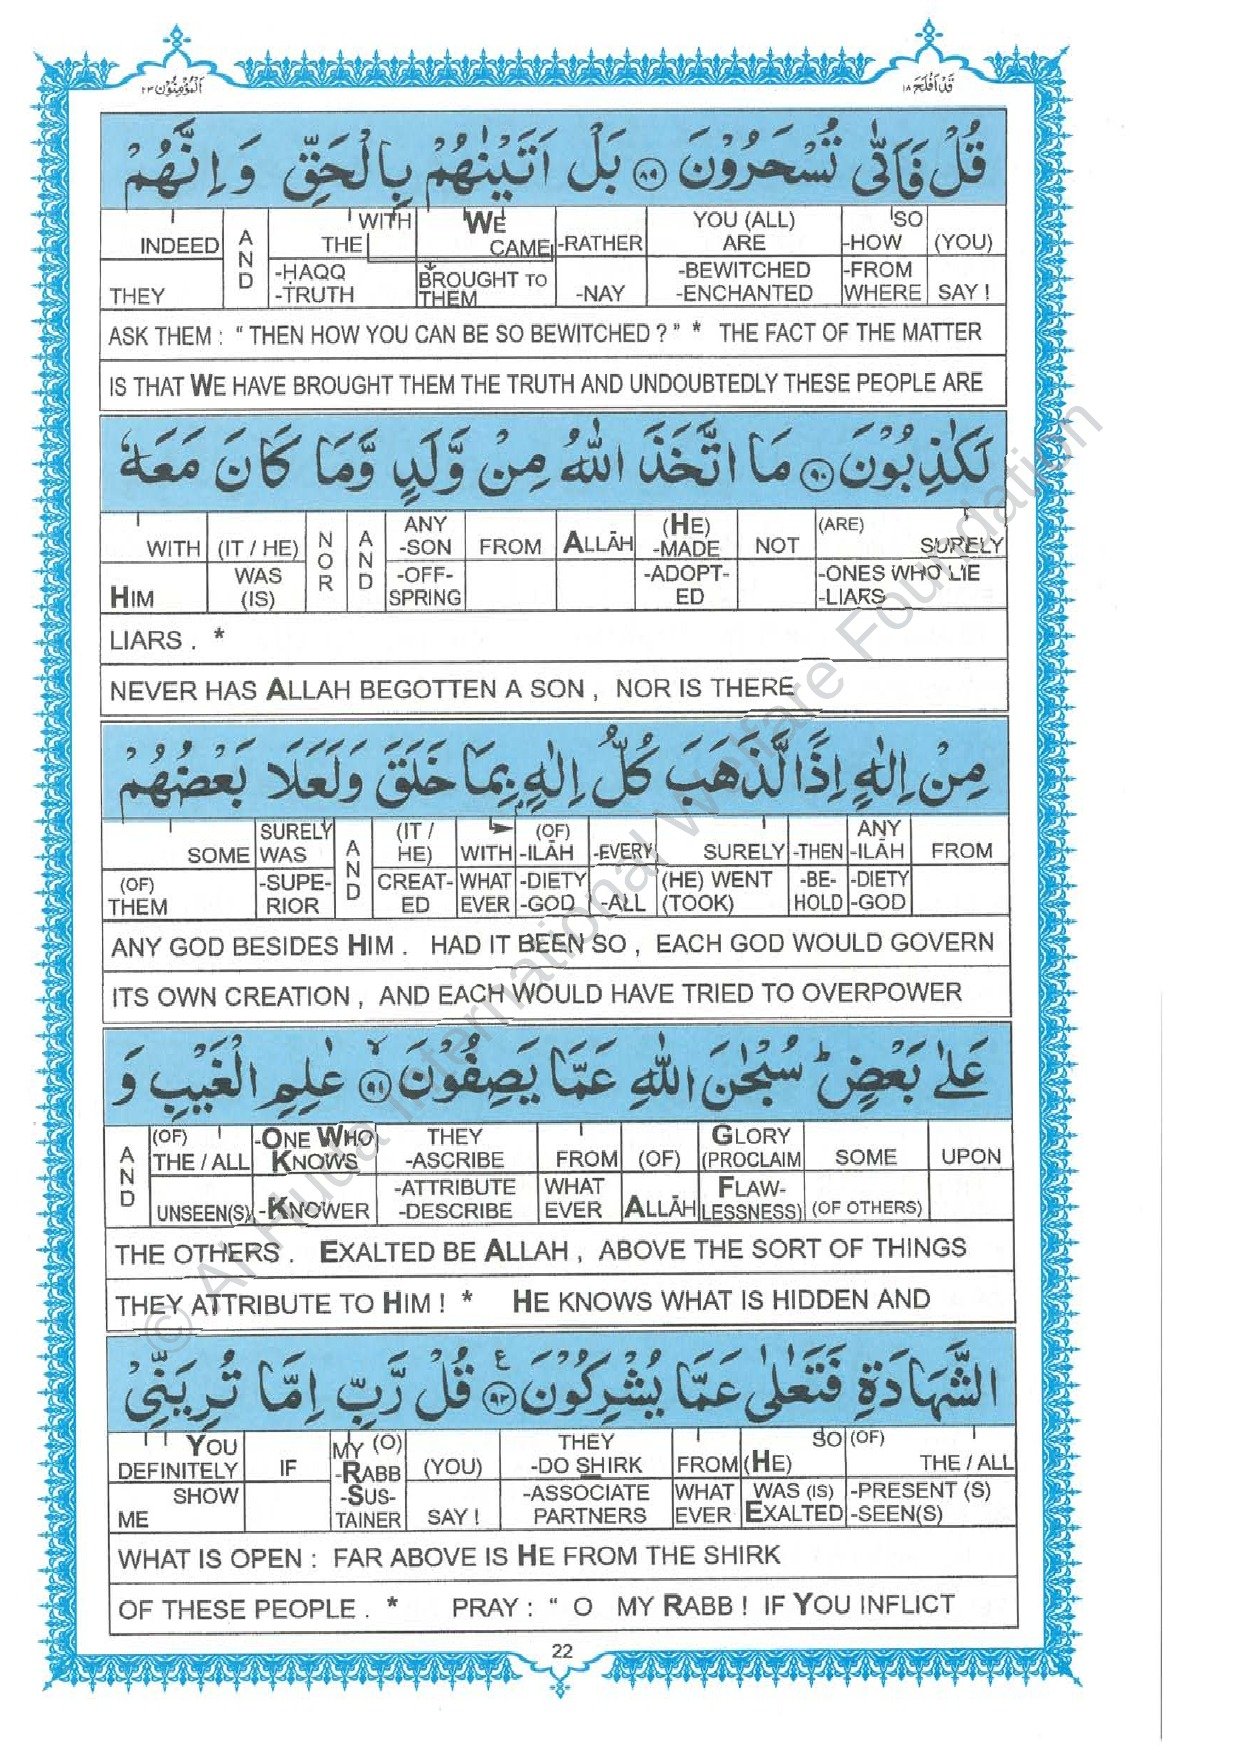 قَدْ اَفْلَحَ ١٨
اَلْمُؤْمِنُوْن ٢٣
قُلْ فَاَنّٰى تُسْحَرُوْنَ ﴿٨٩﴾ بَلْ اَتَيْنٰهُمْ بِالْحَقِّ وَ اِنَّهُمْ
INDEED AND WITH THE WE CAME -RATHER YOU (ALL) ARE SO -HOW (YOU)
THEY -ḤAQQ -TRUTH BROUGHT TO THEM -NAY -BEWITCHED -ENCHANTED -FROM WHERE SAY !
ASK THEM : “ THEN HOW YOU CAN BE SO BEWITCHED ? ” * THE FACT OF THE MATTER
IS THAT WE HAVE BROUGHT THEM THE TRUTH AND UNDOUBTEDLY THESE PEOPLE ARE
لَكٰذِبُوْنَ ﴿٩٠﴾ مَا اتَّخَذَ اللّٰهُ مِنْ وَّلَدٍ وَّمَا كَانَ مَعَهٗ
WITH (IT / HE) NOR AND ANY -SON FROM ALLĀH (HE) -MADE NOT (ARE) SURELY
HIM WAS (IS) -OFF-SPRING -ADOPT-ED -ONES WHO LIE -LIARS
LIARS . *
NEVER HAS ALLAH BEGOTTEN A SON , NOR IS THERE
مِنْ اِلٰهٍ اِذًا لَّذَهَبَ كُلُّ اِلٰهٍۭ بِمَا خَلَقَ وَلَعَلَا بَعْضُهُمْ
SOME SURELY WAS AND (IT / HE) WITH (OF) -ILĀH -EVERY SURELY -THEN ANY -ILĀH FROM
(OF) THEM -SUPE-RIOR CREAT-ED WHAT EVER -DIETY -GOD -ALL (HE) WENT (TOOK) -BE-HOLD -DIETY -GOD
ANY GOD BESIDES HIM . HAD IT BEEN SO , EACH GOD WOULD GOVERN
ITS OWN CREATION , AND EACH WOULD HAVE TRIED TO OVERPOWER
عَلٰى بَعْضٍ ؕ سُبْحٰنَ اللّٰهِ عَمَّا يَصِفُوْنَ ﴿٩١﴾ عٰلِمِ الْغَيْبِ وَ
AND (OF) THE / ALL -ONE WHO KNOWS THEY -ASCRIBE FROM (OF) GLORY (PROCLAIM SOME UPON
UNSEEN(S) -KNOWER -ATTRIBUTE -DESCRIBE WHAT EVER ALLĀH FLAW-LESSNESS) (OF OTHERS)
THE OTHERS . EXALTED BE ALLAH , ABOVE THE SORT OF THINGS
THEY ATTRIBUTE TO HIM ! * HE KNOWS WHAT IS HIDDEN AND
الشَّهَادَةِ فَتَعٰلٰى عَمَّا يُشْرِكُوْنَ ﴿٩٢﴾ ع قُلْ رَّبِّ اِمَّا تُرِيَنِّيْ
YOU DEFINITELY IF MY (O) -RABB (YOU) THEY -DO SHIRK FROM SO (HE) (OF) THE / ALL
SHOW ME -SUS-TAINER SAY ! -ASSOCIATE PARTNERS WHAT EVER WAS (IS) EXALTED -PRESENT (S) -SEEN(S)
WHAT IS OPEN : FAR ABOVE IS HE FROM THE SHIRK
OF THESE PEOPLE . * PRAY : “ O MY RABB ! IF YOU INFLICT
22
© Al Huda International Welfare Foundation